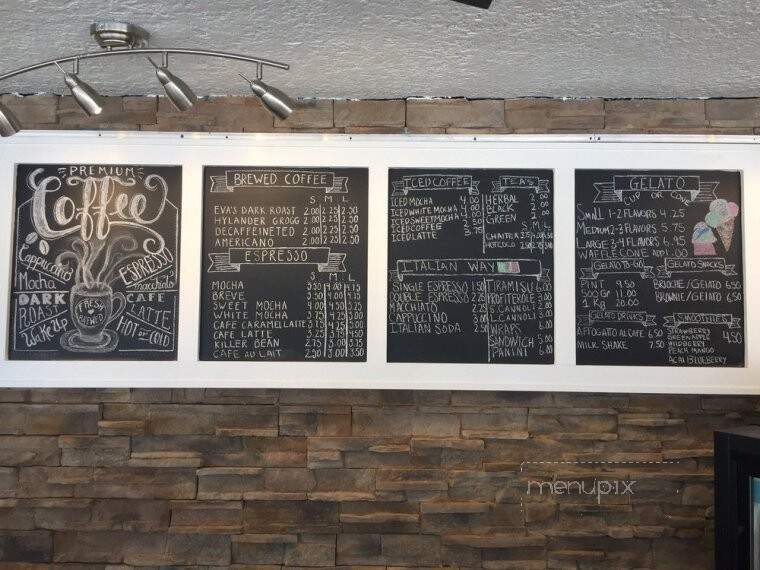 PREMIUM
Coffee
Cappuccino
Mocha
ESPRESSO
macchiato
DARK
ROAST
Wake Up
FRESH
BREWED
CAFE
LATTE
HOT or COLD
BREWED COFFEE
S M L
EVA'S DARK ROAST 2.00 2.25 2.50
HYLANDER GROGG 2.00 2.25 2.50
DECAFFEINETED 2.00 2.25 2.50
AMERICANO 2.00 2.25 2.50
ESPRESSO
S M L
MOCHA 3.50 4.00 4.15
BREVE 3.50 4.00
SWEET MOCHA 4.00 4.50
WHITE MOCHA 3.75 4.25
CAFE CARAMELLATE 3.75 4.25
CAFE LATTE
KILLER BEAN 2.75 3.00 3.15
CAFE AU LAIT 2.50 3.00 3.50
ICED COFFEE
ICED MOCHA 4.00
ICED WHITE MOCHA 4.00
ICED SWEET MOCHA
ICED COFFEE
ICED LATTE 3.75
TEA'S
HERBAL 2.00
BLACK
GREEN
S M L
CHAI TEA
HOT COCO
ITALIAN WAY
SINGLE ESPRESSO 1.50
DOUBLE ESPRESSO 2.25
MACCHIATO
CAPPUCCINO
ITALIAN SODA 2.50
TIRAMISU 6.00
PROFITEROLE
S. CANNOLI
L. CANNOLI
WRAPS
SANDWICH
PANINI
GELATO
CUP OR CONE
Small 1-2 FLAVORS 4.25
MEDIUM 2-3 FLAVORS 5.75
LARGE 3-4 FLAVORS 6.95
WAFFLE CONE ADD 1.00
GELATO TO-GO
PINT 9.50
500 Gr 11.00
1 Kg 20.00
GELATO SNACKS
BRIOCHE/GELATO 6.50
BROWNIE/GELATO 6.50
GELATO DRINKS
AFFOGATO AL CAFE 6.50
MILK SHAKE 7.50
SMOOTHIES
STRAWBERRY
GREEN APPLE 4.50
WILDBERRY
PEACH MANGO
ACAI BLUEBERRY
menupix